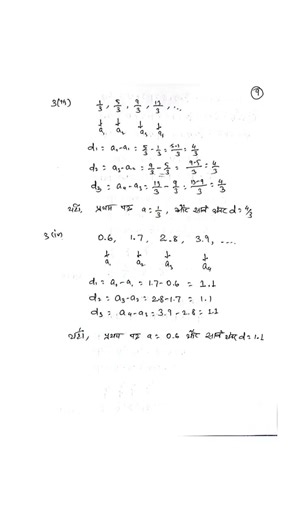 9
3(iii) 1/3, 5/3, 9/3, 13/3, ...
↓ ↓ ↓ ↓
a₁ a₂ a₃ a₄
d₁ = a₂-a₁ = 5/3 - 1/3 = 5-1/3 = 4/3
d₂ = a₃-a₂ = 9/3 - 5/3 = 9-5/3 = 4/3
d₃ = a₄-a₃ = 13/3 - 9/3 = 13-9/3 = 4/3
यहाँ, प्रथम पद a = 1/3, और सार्व अंतर d = 4/3
3(iv) 0.6, 1.7, 2.8, 3.9, ....
↓ ↓ ↓ ↓
a₁ a₂ a₃ a₄
d₁ = a₂-a₁ = 1.7-0.6 = 1.1
d₂ = a₃-a₂ = 2.8-1.7 = 1.1
d₃ = a₄-a₃ = 3.9-2.8 = 1.1
यहाँ, प्रथम पद a = 0.6 और सार्व अंतर d = 1.1